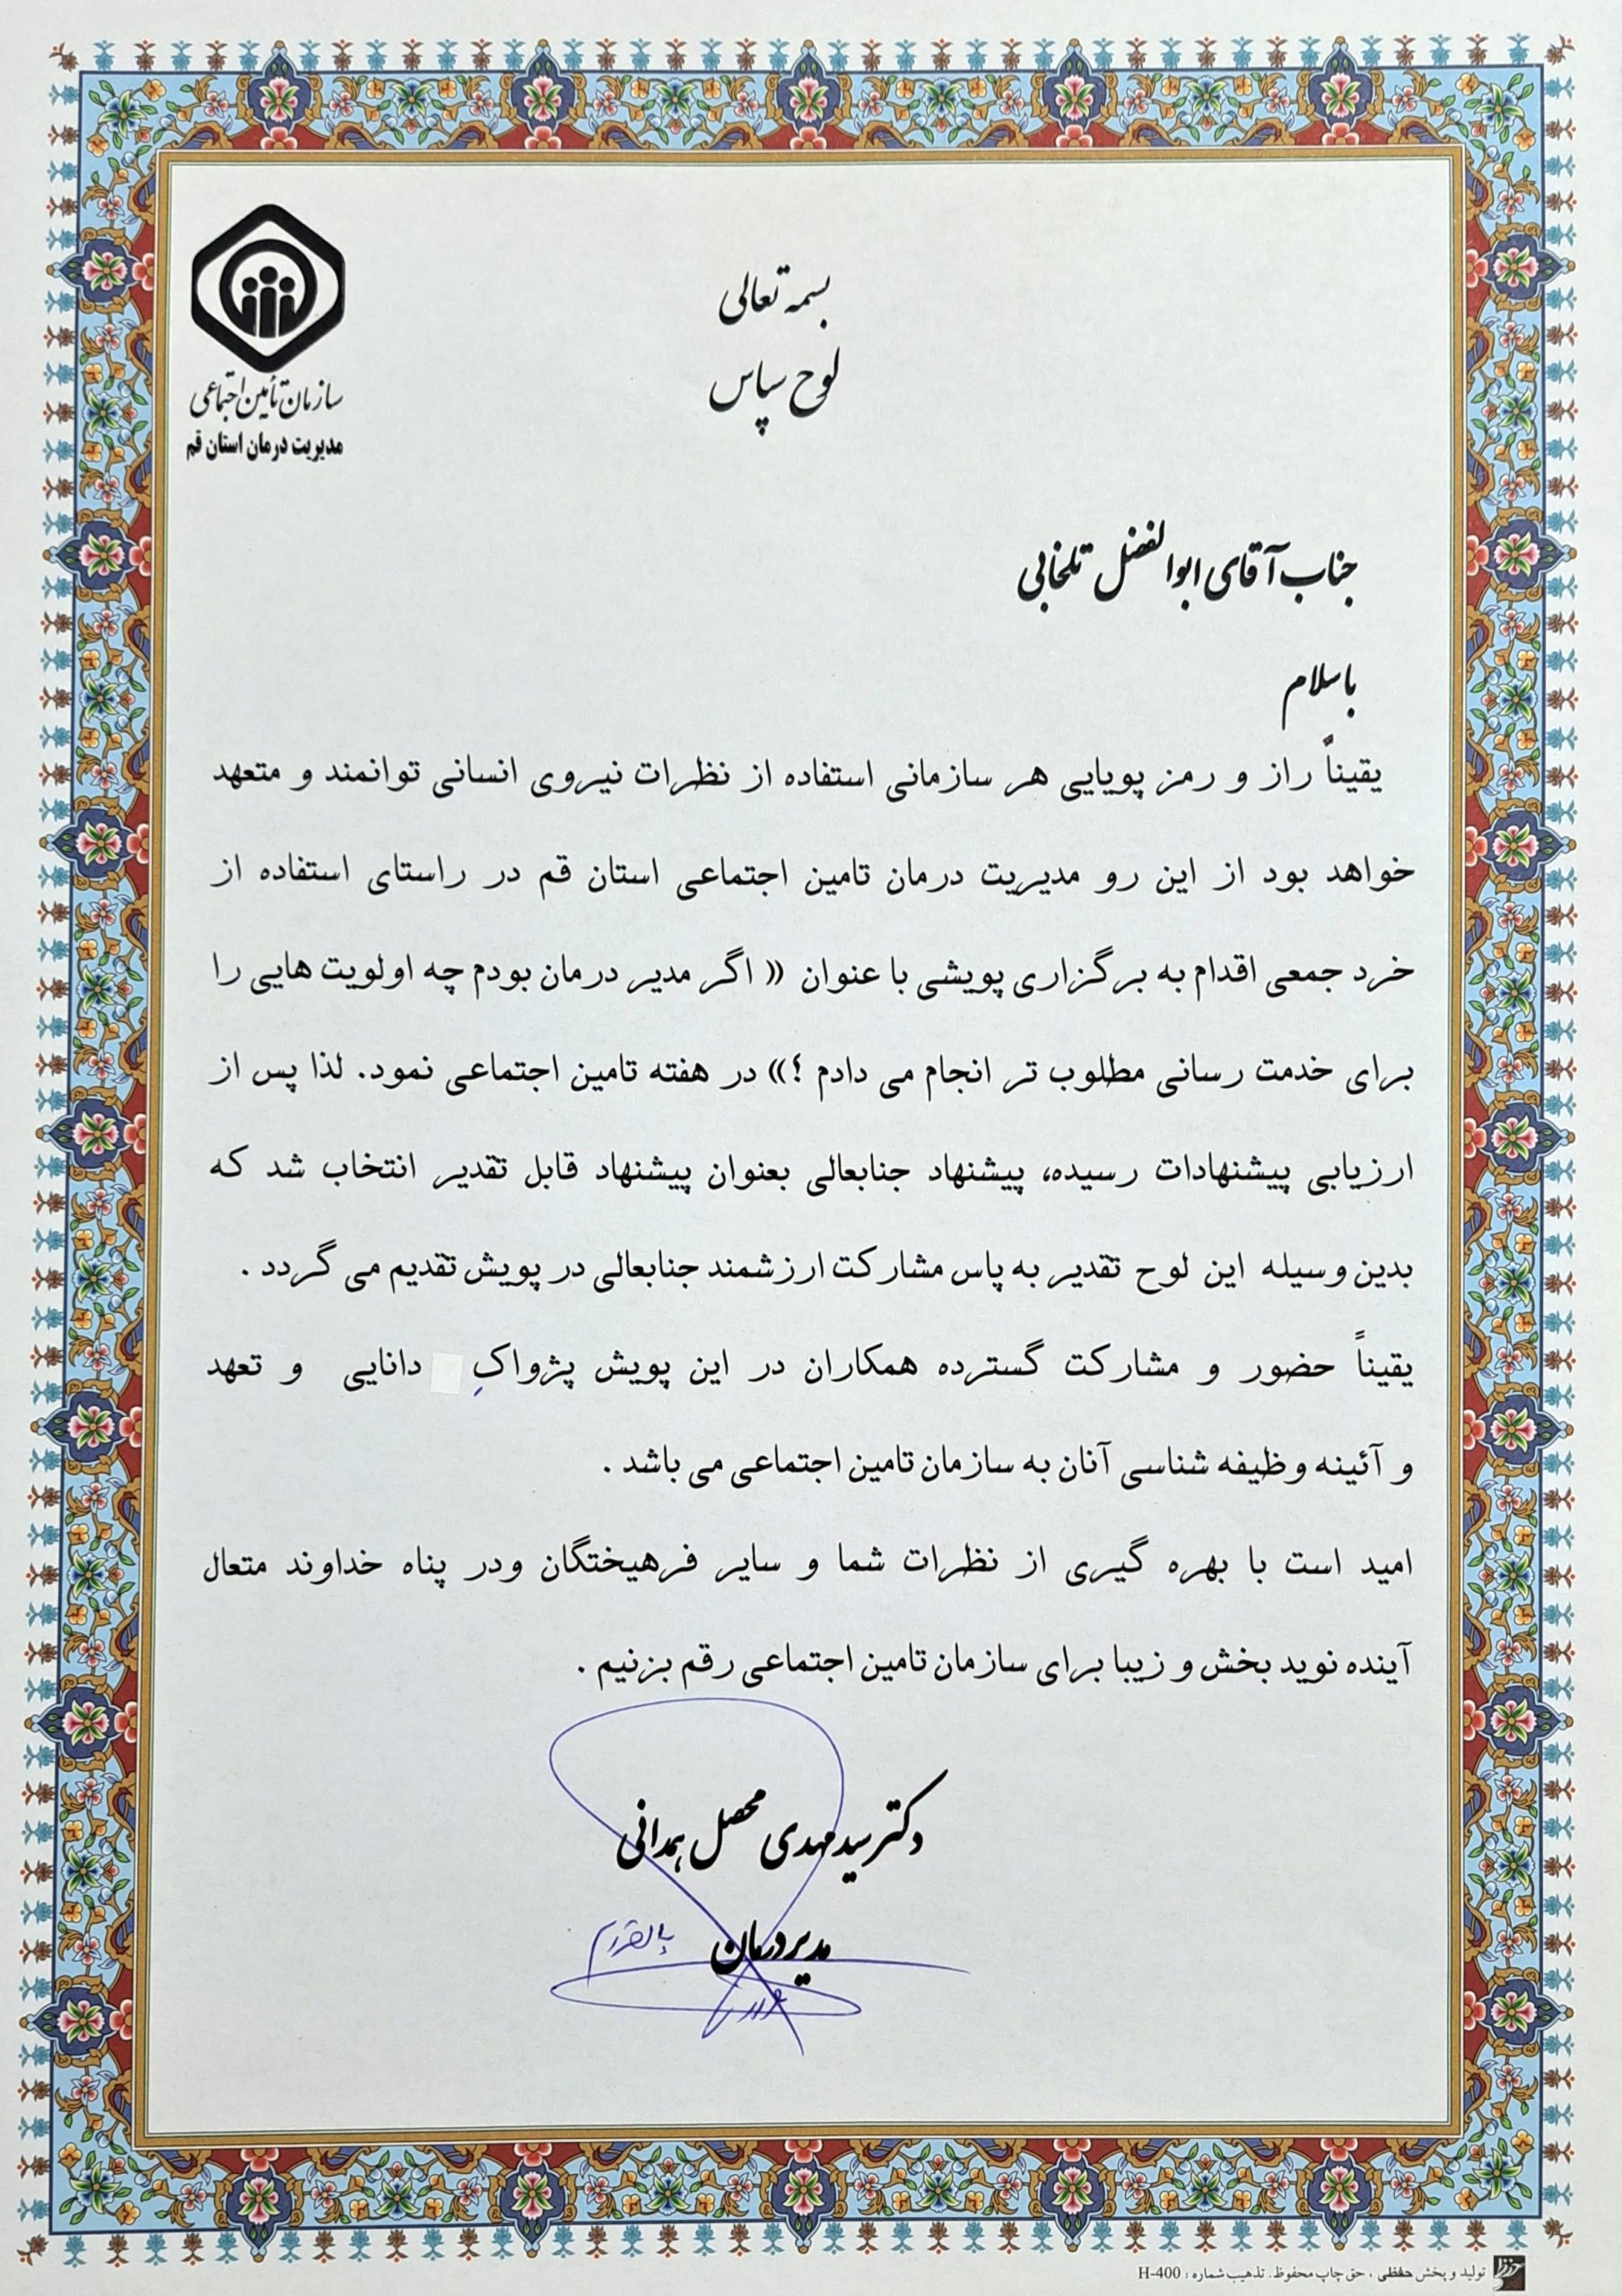 بسمه تعالی
لوح سپاس
سازمان تأمین اجتماعی
مدیریت درمان استان قم
جناب آقای ابوالفضل تلخابی
باسلام
یقیناً راز و رمز پویایی هر سازمانی استفاده از نظرات نیروی انسانی توانمند و متعهد
خواهد بود از این رو مدیریت درمان تامین اجتماعی استان قم در راستای استفاده از
خرد جمعی اقدام به برگزاری پویشی با عنوان « اگر مدیر درمان بودم چه اولویت هایی را
برای خدمت رسانی مطلوب تر انجام می دادم ؟» در هفته تامین اجتماعی نمود. لذا پس از
ارزیابی پیشنهادات رسیده، پیشنهاد جنابعالی بعنوان پیشنهاد قابل تقدیر انتخاب شد که
بدین وسیله این لوح تقدیر به پاس مشارکت ارزشمند جنابعالی در پویش تقدیم می گردد .
یقیناً حضور و مشارکت گسترده همکاران در این پویش پژواکِ دانایی و تعهد
و آئینه وظیفه شناسی آنان به سازمان تامین اجتماعی می باشد .
امید است با بهره گیری از نظرات شما و سایر فرهیختگان ودر پناه خداوند متعال
آینده نوید بخش و زیبا برای سازمان تامین اجتماعی رقم بزنیم .
دکتر سید مهدی محصل همدانی
مدیر درمان
تولید و پخش حفظی ، حق چاپ محفوظ. تذهیب شماره : H-400